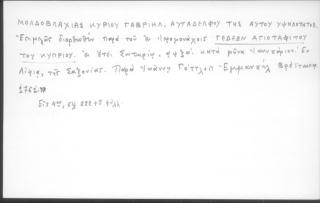 ΜΟΛΔΟΒΛΑΧΙΑΣ ΚΥΡΙΟΥ ΓΑΒΡΙΗΛ, ΑΥΤΑΔΕΛΦΟΥ ΤΗΣ ΑΥΤΟΥ ΥΨΗΛΟΤΗΤΟΣ.
Ἐπιμελῶς διορθωθὲν παρὰ τοῦ ἐν Ἱερομονάχοις ΓΕΔΕΩΝ ΑΓΙΟΤΑΦΙΤΟΥ
ΤΟΥ ΚΥΠΡΙΟΥ. Ἐν ἔτει Σωτηρίῳ, κατὰ μῆνα Ἰαννουάριον. Ἐν
Λιψίᾳ, τῆς Σαξονίας. Παρὰ Ἰωάννῃ Γόττλοπ Ἐμμανουὴλ
Εἰς 4ον, σχ.